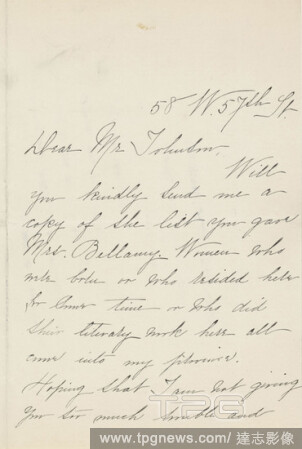 58 W. 57th St.
Dear Mr Johnson.
Will
you kindly send me a
copy of the list you gave
Mrs. Bellamy. Women who
were born or who resided here
for some time or who did
their literary work here all
come into my province.
Hoping that I am not giving
you too much trouble and
TPG
www.tpgnews.com/達志影像